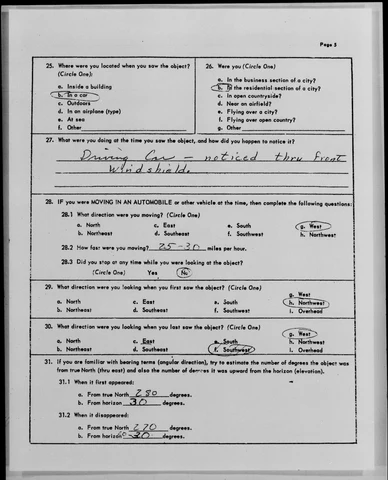 Page 3
25. Where were you located when you saw the object?
(Circle One):
a. Inside a building
b. In a car
c. Outdoors
d. In an airplane (type)
e. At sea
f. Other
26. Were you (Circle One)
a. In the business section of a city?
b. In the residential section of a city?
c. In open countryside?
d. Near an airfield?
e. Flying over a city?
f. Flying over open country?
g. Other
27. What were you doing at the time you saw the object, and how did you happen to notice it?
Driving Car — noticed thru front
windshield.
28. IF you were MOVING IN AN AUTOMOBILE or other vehicle at the time, then complete the following questions:
28.1 What direction were you moving? (Circle One)
a. North c. East e. South g. West
b. Northeast d. Southeast f. Southwest h. Northwest
28.2 How fast were you moving? 25-30 miles per hour.
28.3 Did you stop at any time while you were looking at the object?
(Circle One) Yes No
29. What direction were you looking when you first saw the object? (Circle One)
a. North c. East e. South g. West
b. Northeast d. Southeast f. Southwest h. Northwest
i. Overhead
30. What direction were you looking when you last saw the object? (Circle One)
a. North c. East e. South g. West
b. Northeast d. Southeast f. Southwest h. Northwest
i. Overhead
31. If you are familiar with bearing terms (angular direction), try to estimate the number of degrees the object was
from true North (thru east) and also the number of degrees it was upward from the horizon (elevation).
31.1 When it first appeared:
a. From true North 280 degrees.
b. From horizon 30 degrees.
31.2 When it disappeared:
a. From true North 270 degrees.
b. From horizon 20-30 degrees.